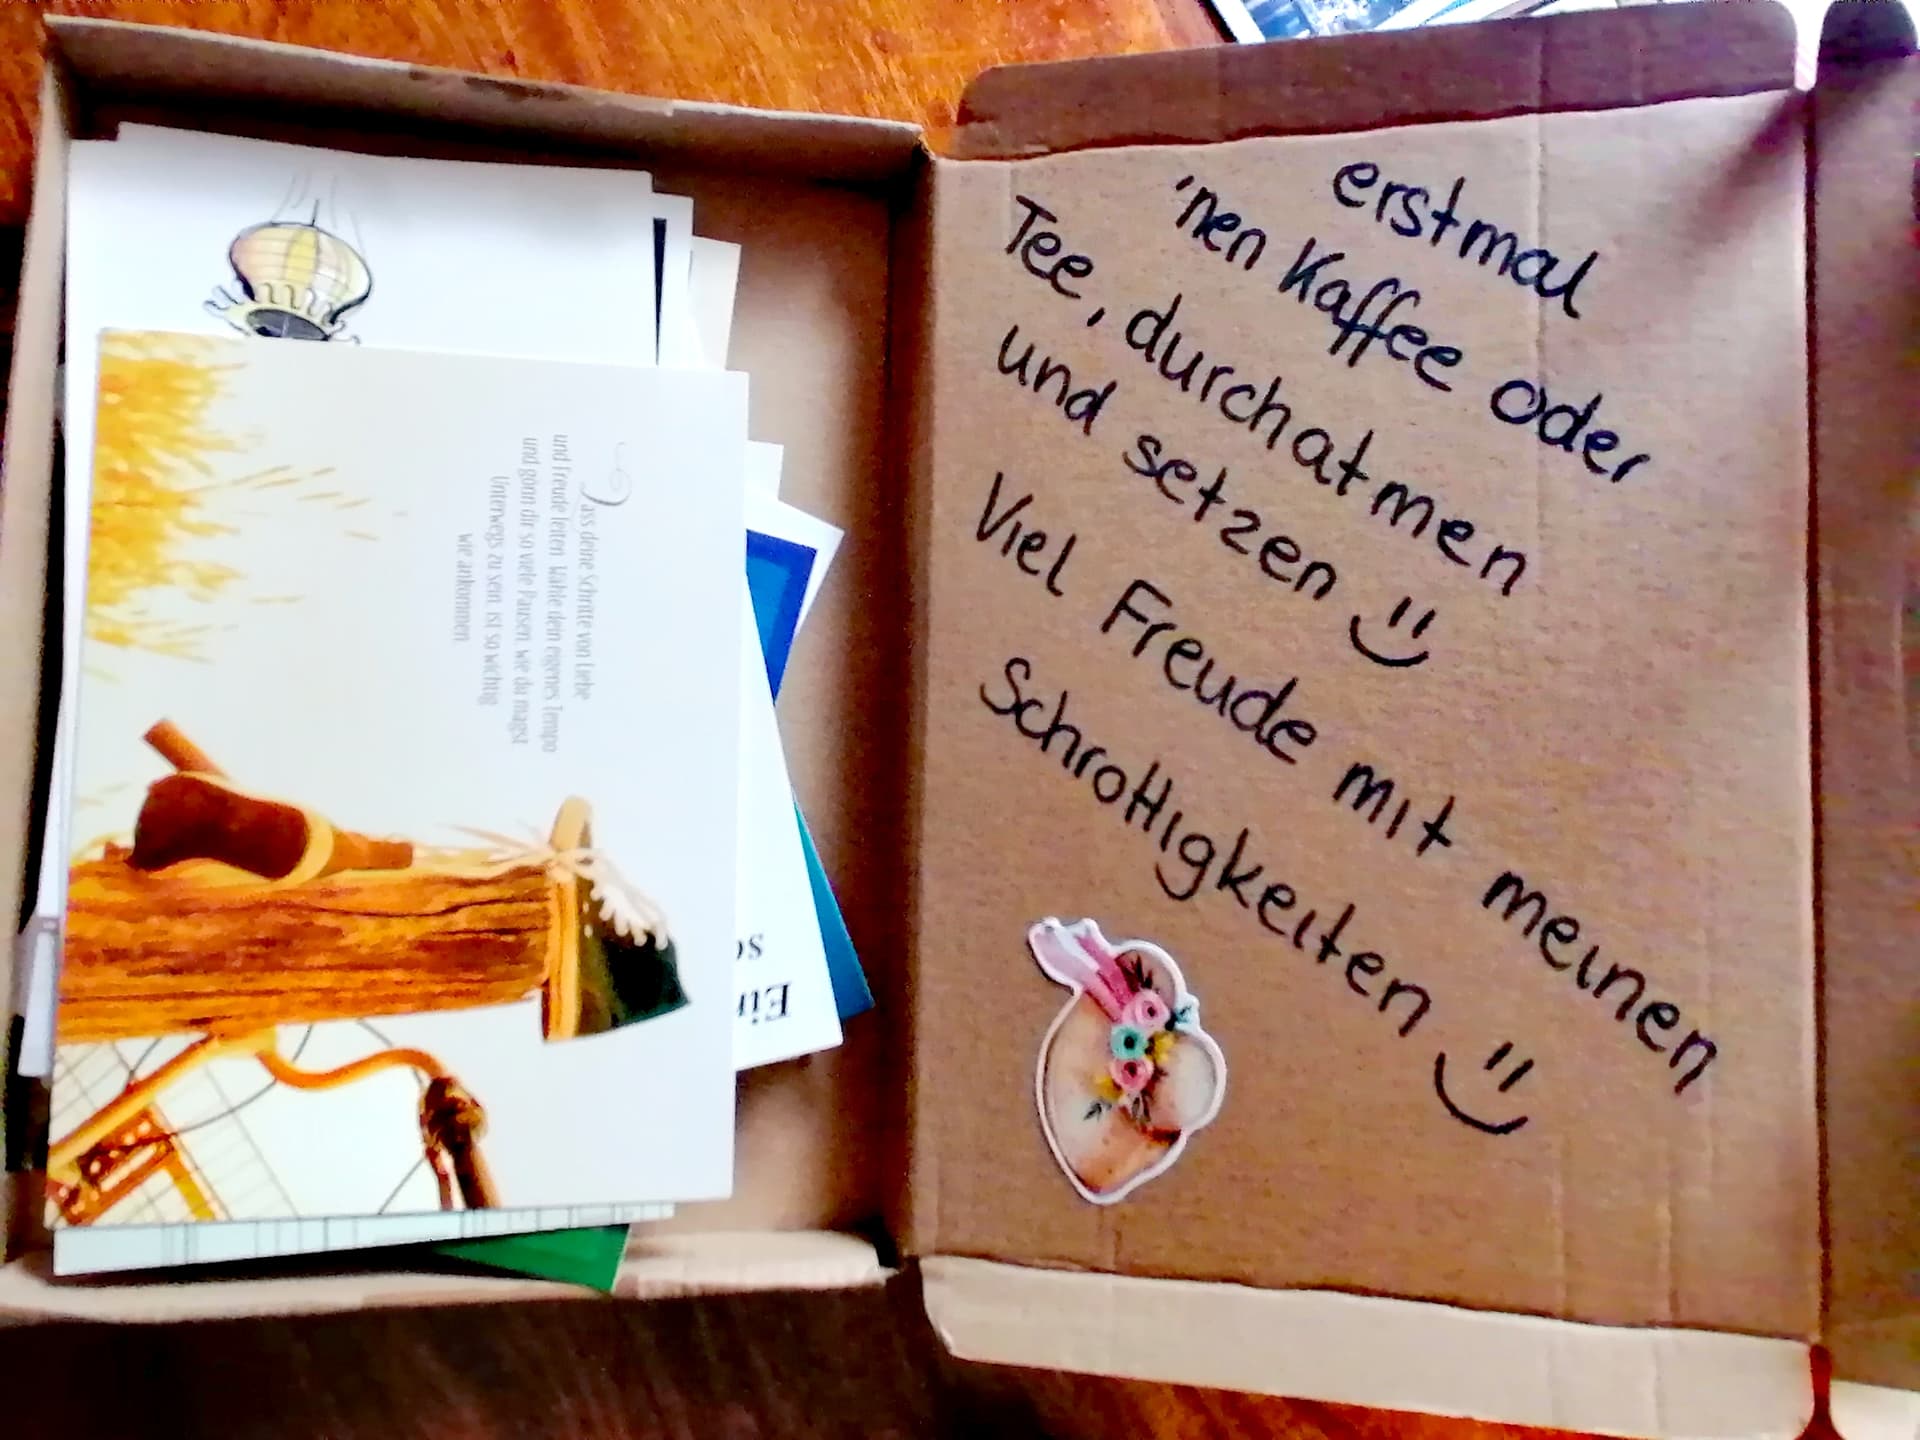 Lass deine Schritte von Liebe
und Freude leiten. Wähle dein eigenes Tempo
und gönn dir so viele Pausen, wie du magst.
Unterwegs zu sein, ist so wichtig
wie ankommen.
erstmal
'nen Kaffee oder
Tee, durchatmen
und setzen
Viel Freude mit meinen
Schrottigkeiten